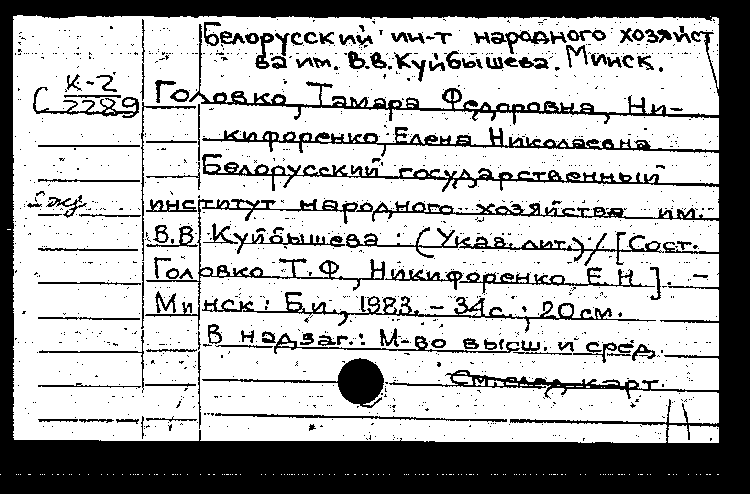 Белорусский ин-т народного хозяйст
ва им. В.В.Куйбышева. Минск.
С К-2
2289
Головко, Тамара Федоровна, Ни-
кифоренко, Елена Николаевна
Белорусский государственный
институт народного хозяйства им.
В.В Куйбышева : (Указ. лит.) / [Сост.
Головко Т.Ф., Никифоренко Е.Н.]. -
Минск : Б.и., 1983. - 34с. ; 20см.
В надзаг.: М-во высш. и сред.
См. след. карт.